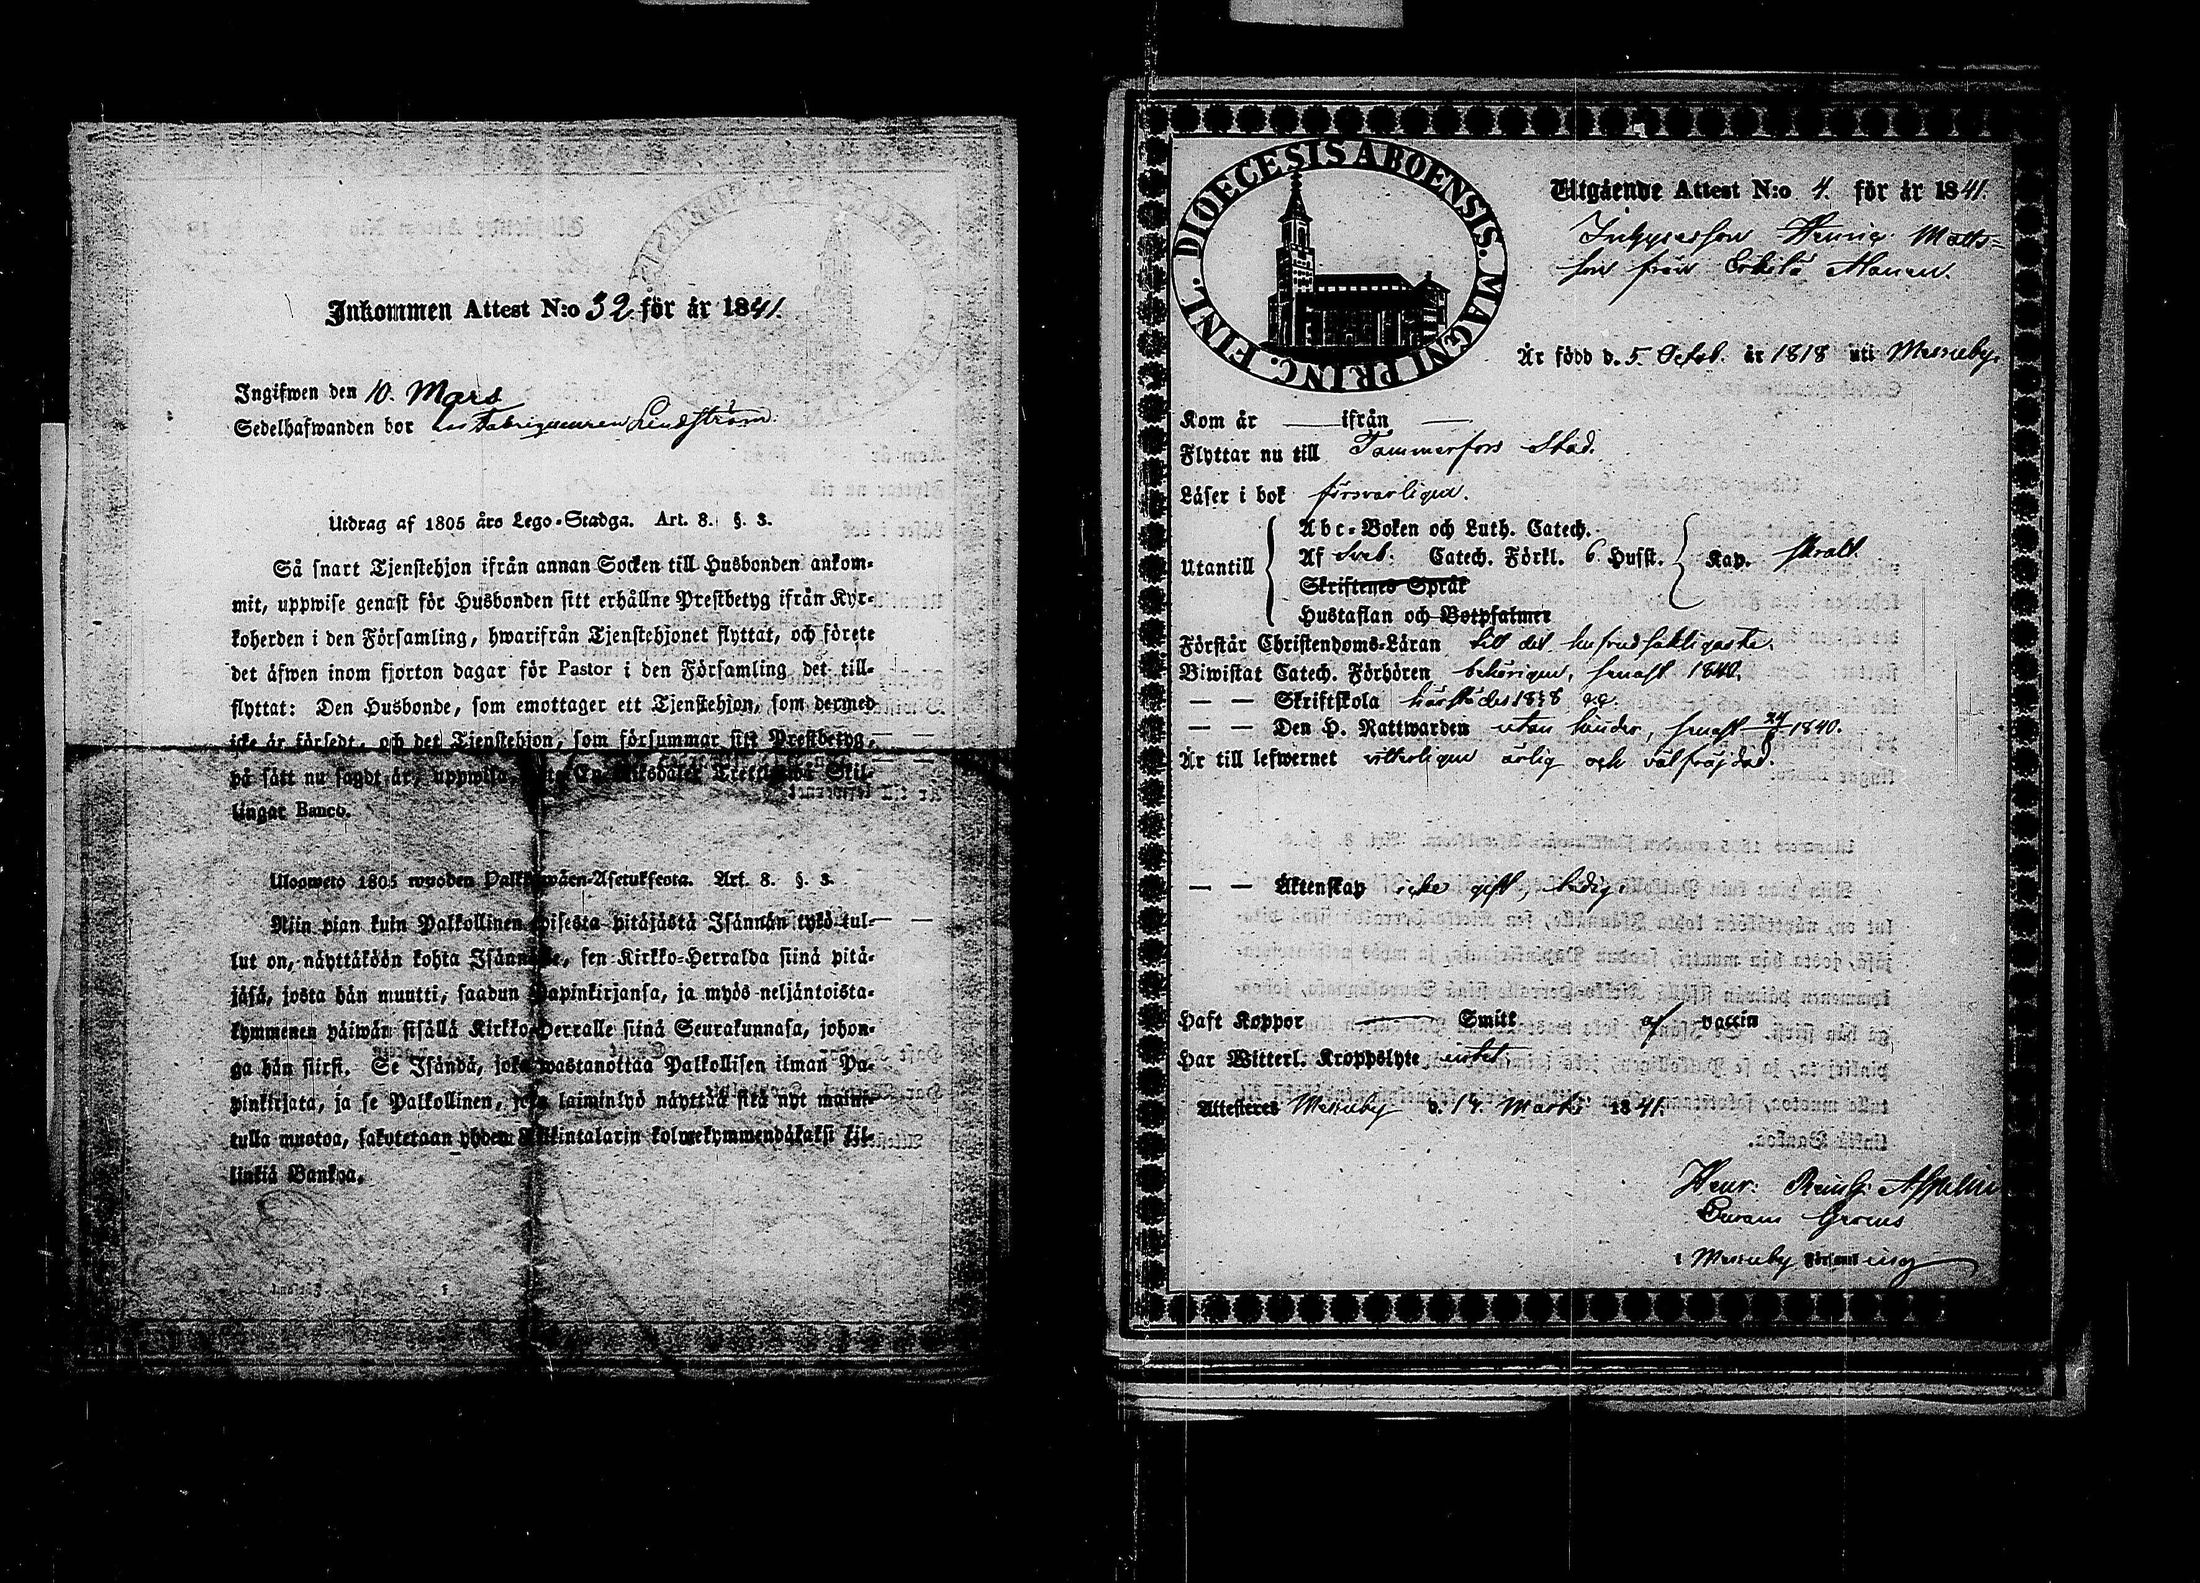 Inkommen Attest N:o 32 för år 1841.
Ingifwen den 10. Mars
Sedelhafwanden bor hos Fabriqueuren Lindström.
Utdrag af 1805 års Lego-Stadga. Art. 8. §. 3.
Så snart Tjenstehjon ifrån annan Socken till Husbonden ankom-
mit, uppwise genast för Husbonden sitt erhållne Prestbetyg ifrån Kyr-
koherden i den Församling, hwarifrån Tjenstehjonet flyttat, och förete
det äfwen inom fjorton dagar för Pastor i den Församling det till-
flyttat: Den Husbonde, som emottager ett Tjenstehjon, som dermed
icke är försedt, och det Tjenstehjon, som försummar sitt Prestbetyg,
på sätt nu sagdt är, uppwisa, En Riksdaler Trettiotwå Skil-
lingar Banco.
Ulosweto 1805 wuoden Palkkawäen-Asetuksesta. Art. 8. §. 3.
Niin pian kuin Palkollinen toisesta pitäjästä Isännän tykö tul-
lut on, näyttäköön kohta Isännälle, sen Kirkko-Herralda siinä pitä-
jäsä, josta hän muutti, saadun Papinkirjansa, ja myös neljäntoista-
kymmenen päiwän sisällä Kirkko-Herralle siinä Seurakunnasa, johon-
ga hän siirsi. Se Isändä, joka wastanottaa Palkollisen ilman Pa-
pinkirjata, ja se Palkollinen, joka laiminlyö näyttää sitä nyt maini-
tulla muotoa, sakotetaan yhden Riikintalarin kolmekymmendäkaksi kil-
linkiä Bankoa.
DIOECESIS ABOENSIS. MAGNI PRINC. FINL.
Utgående Attest N:o 4. för år 1841.
Henric Matts=
son från
Är född d. 5. Octob. år 1818 uti Messuby.
Kom år — ifrån —
Flyttar nu till Tammerfors Stad.
Läser i bok försvarligen.
Utantill Abc-Boken och Luth. Catech.
Af Sveb: Catech. Förkl. 6. Hufst. Kap. skralt.
Skriftenes Språk
Hustaflan och Botpsalmer
Förstår Christendoms-Läran till det hufvudsakligaste.
Biwistat Catech. Förhören behörigen, senast 1840.
— — Skriftskola härstädes 1838
— — Den H. Nattwarden utan hinder, senast 1840.
Är till lefwernet vitterligen ärlig och välfräjdad.
— — Äktenskap icke gift, ledig.
Haft Koppor — Smitt af vaccin
Har Witterl. Kroppslyte intet.
Attesteres Messuby d. 14. Martii 1841.
Henr. Reinh.
Curam Gerens
i Messuby Församling